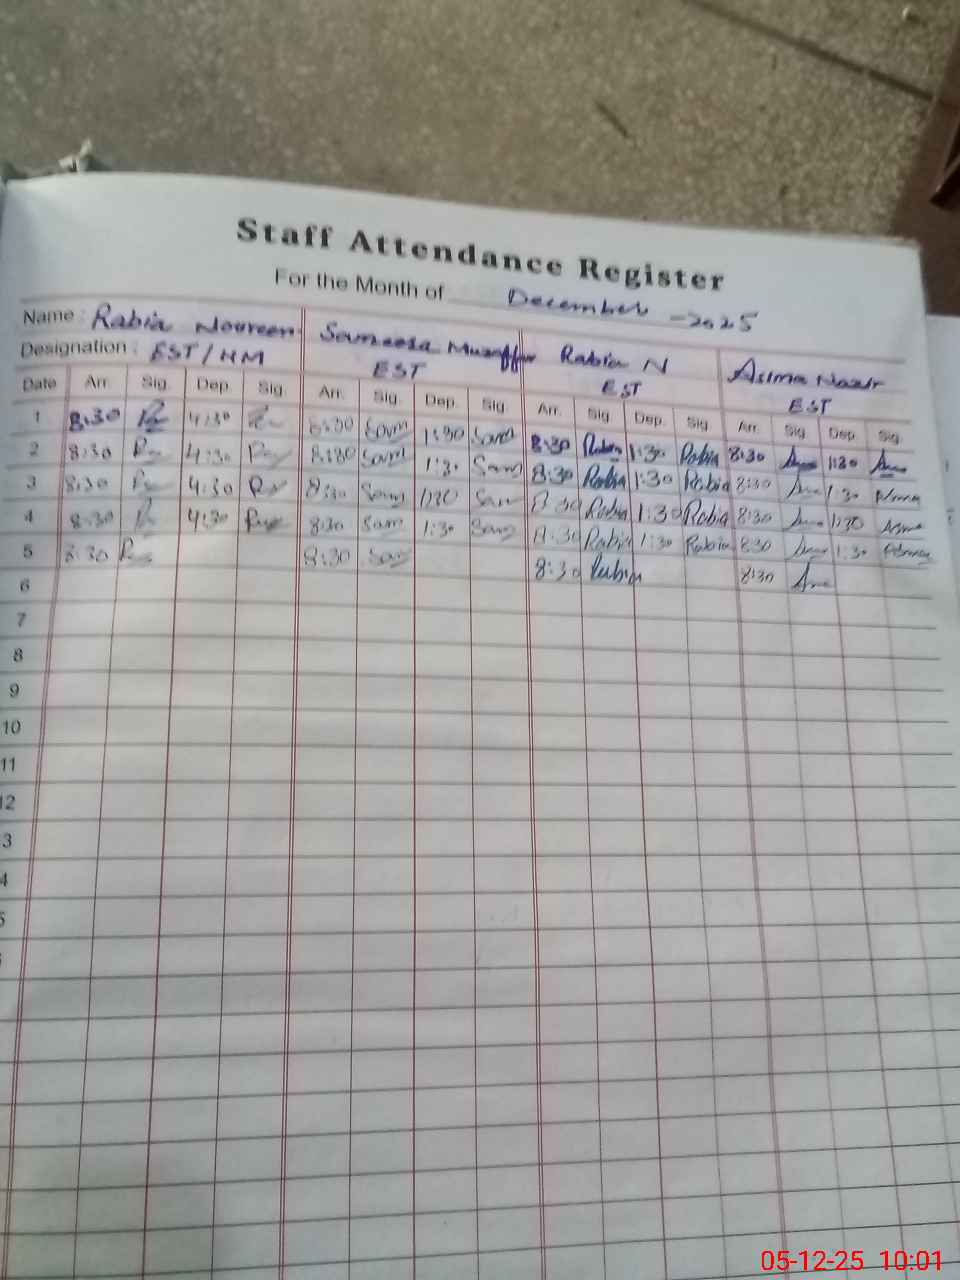 Staff Attendance Register
For the Month of December - 2025
Name : Rabia Noureen Sameera Muzaffar Rabia N Asima Nazir
Designation : EST/HM EST EST EST
Date Arr. Sig. Dep. Sig. Arr. Sig. Dep. Sig. Arr. Sig. Dep. Sig. Arr. Sig. Dep. Sig.
1 8:30 4:30 8:30 Sam 1:30 Sam 8:30 Rabia 1:30 Rabia 8:30 1:30
2 8:30 4:30 8:30 Sam 1:30 Sam 8:30 Rabia 1:30 Rabia 8:30 1:30
3 8:30 4:30 8:30 Sam 1:30 Sam 8:30 Rabia 1:30 Rabia 8:30 1:30
4 8:30 4:30 8:30 Sam 1:30 Sam 8:30 Rabia 1:30 Rabia 8:30 1:30
5 8:30 8:30 Sam 8:30 Rabia 8:30
6
7
8
9
10
11
12
3
4
5
05-12-25 10:01